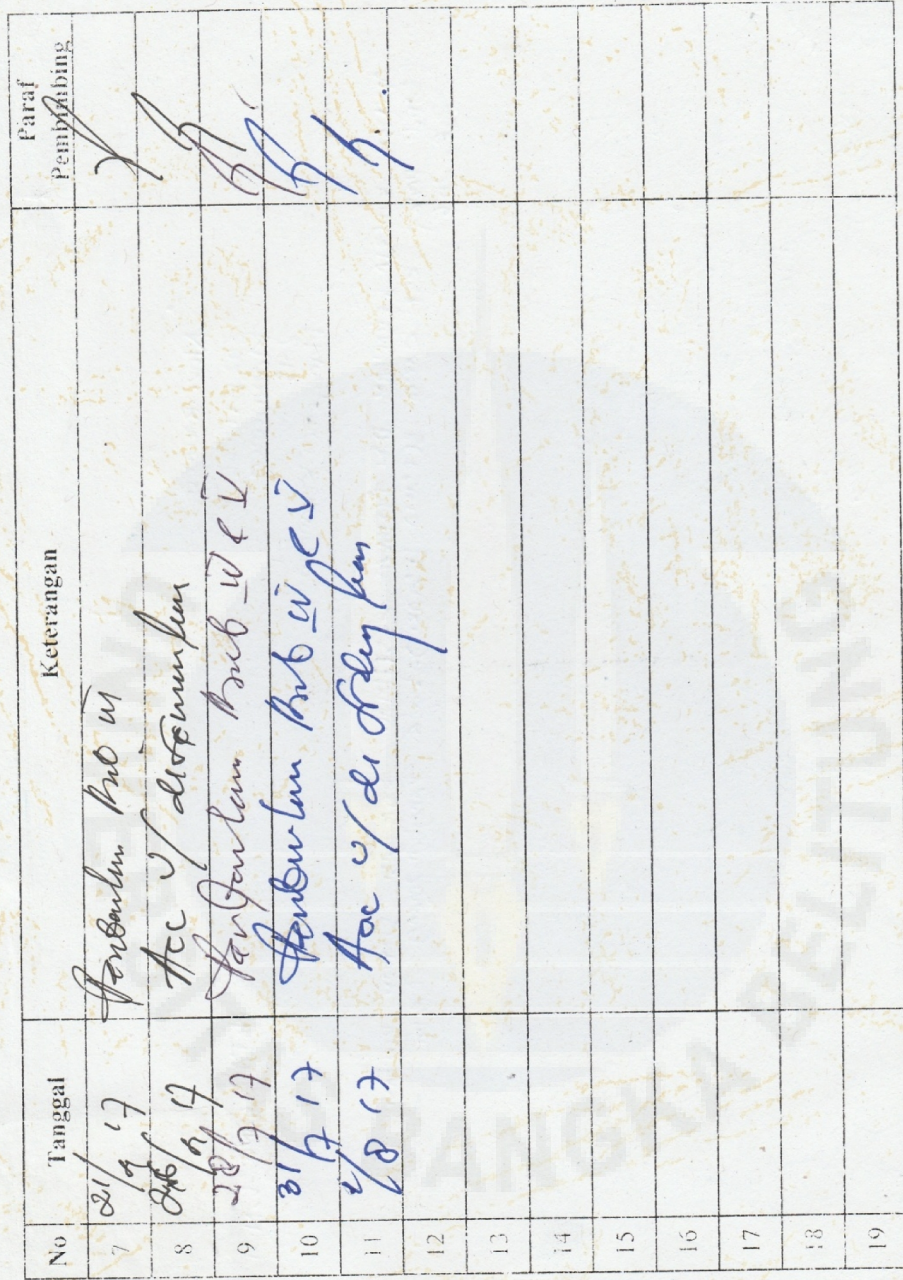 No Tanggal Keterangan Paraf Pembimbing
7 21/7 17 Perbaikan Bab III
8 26/7 17 Acc u/
9 28/7 17 Perbaikan Bab IV & V
10 31/7 17 Perbaikan Bab IV & V
11 2/8 17 Acc u/ di sidangkan
12
13
14
15
16
17
18
19
UNIVERSITAS BANGKA BELITUNG